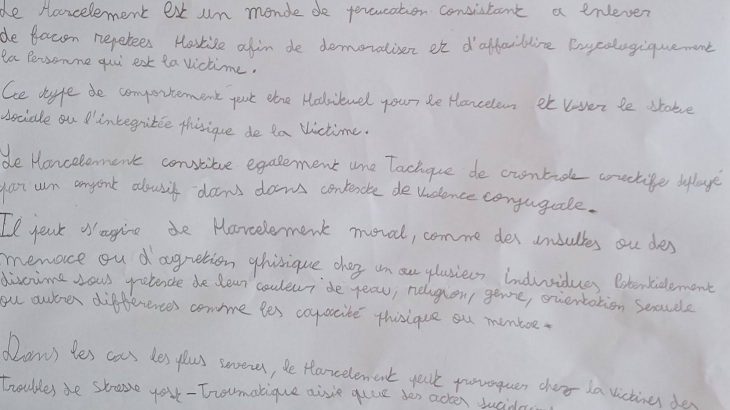 Le Harcelement est un monde de percucation consistant a enlever
de facon repetees Hostile afin de demoraliser et d'affaiblire Psycologiquement
la Personne qui est la Victime.
Ce type de comportement peut etre Habituel pour le Harceleur et Viser le statue
sociale ou l'integritée phisique de la Victime.
Le Harcelement constitue egalement une Tachque de crontrole corectife deployé
par un conjont abusif dans dans contexte de violence conjugale.
Il peut s'agire de Harcelement moral, comme des insultes ou des
menace ou d'agretion phisique chez un ou plusieur individues Potentielement
discrime sous pretexte de leur couleur de peau, religion, genre, orientation Sexuele
ou autres différences comme les capacité phisique ou mentae.
Dans les cas les plus severes, le Harcelement peut provoquer chez la victimes des
Troubles de Stresse post-Troumatique aisie que des actes